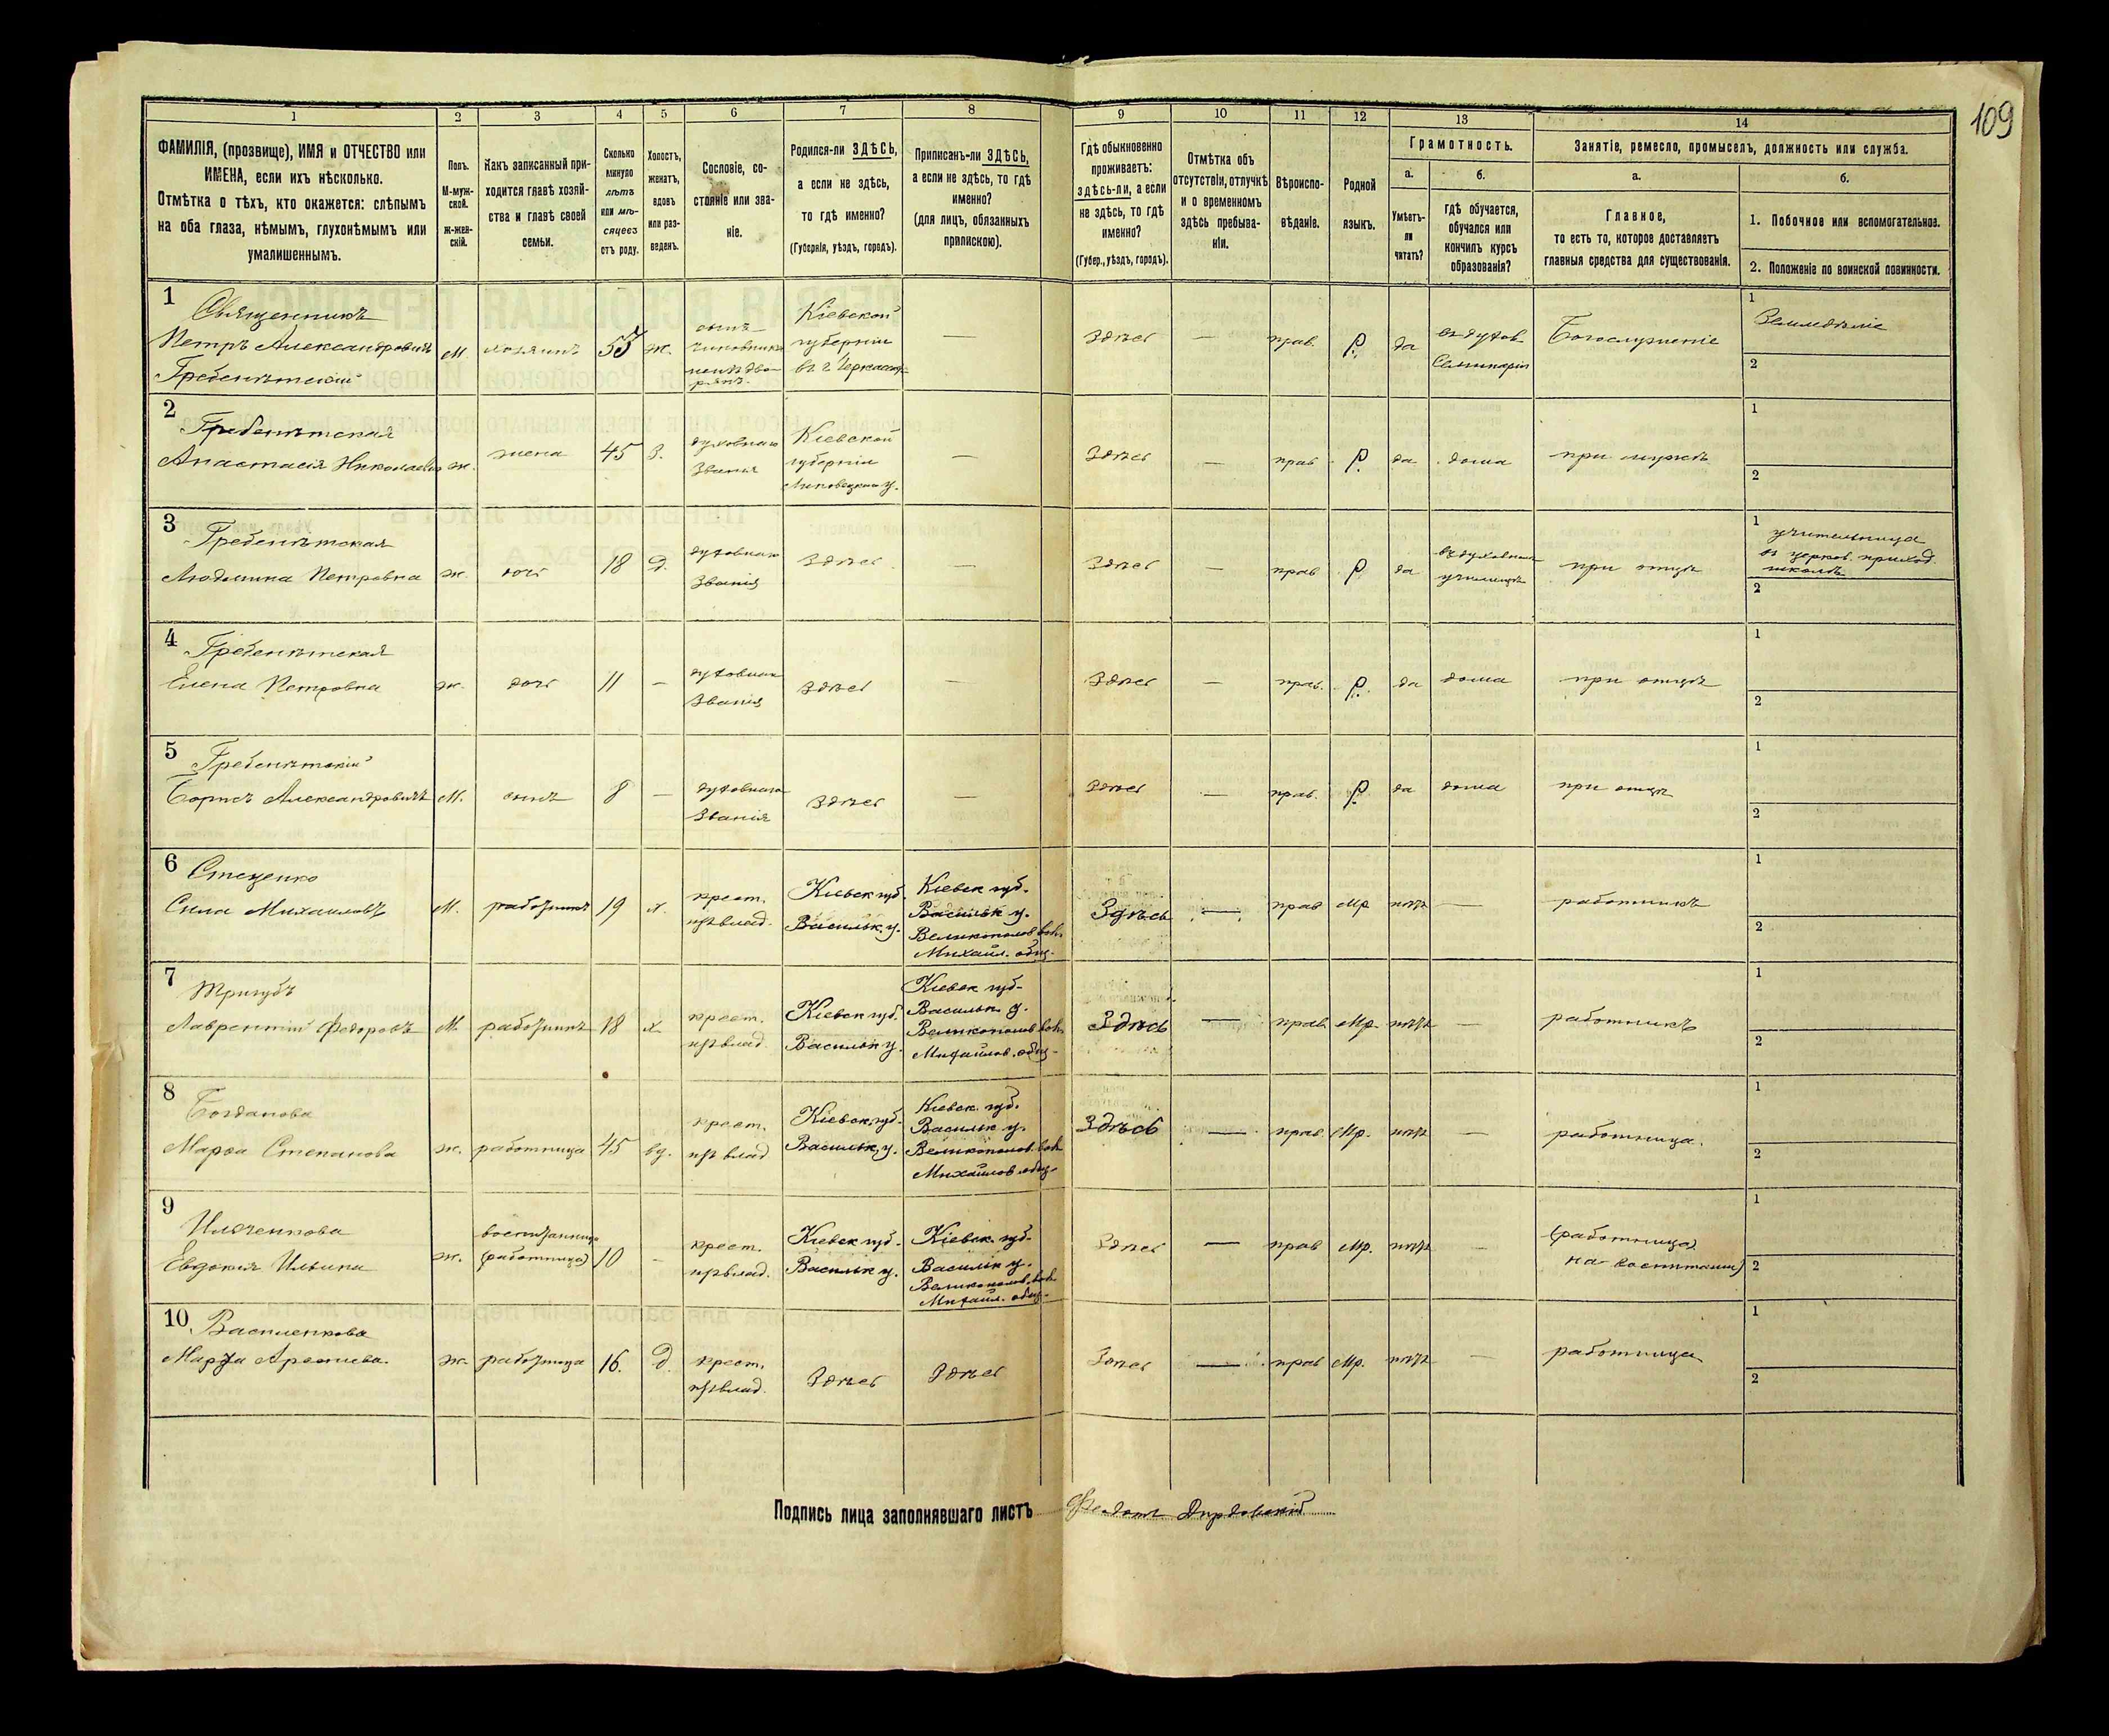 109
1
2
3
4
5
6
7
8
9
10
11
12
13
14
ФАМИЛІЯ, (прозвище), ИМЯ и ОТЧЕСТВО или
ИМЕНА, если ихъ нѣсколько.
Отмѣтка о тѣхъ, кто окажется: слѣпымъ
на оба глаза, нѣмымъ, глухонѣмымъ или
умалишеннымъ.
Полъ.
М-муж-
ской.
Ж-жен-
скій.
Какъ записанный при-
ходится главѣ хозяй-
ства и главѣ своей
семьи.
Сколько
минуло
лѣтъ
или мѣ-
сяцевъ
отъ роду.
Холостъ,
женатъ,
вдовъ
или раз-
веденъ.
Сословіе, со-
стояніе или зва-
ніе.
Родился-ли ЗДѢСЬ,
а если не здѣсь,
то гдѣ именно?
(Губернія, уѣздъ, городъ).
Приписанъ-ли ЗДѢСЬ,
а если не здѣсь, то гдѣ
именно?
(для лицъ, обязанныхъ
припискою).
Гдѣ обыкновенно
проживаетъ:
здѣсь-ли, а если
не здѣсь, то гдѣ
именно?
(Губер., уѣздъ, городъ).
Отмѣтка объ
отсутствіи, отлучкѣ
и о временномъ
здѣсь пребыва-
ніи.
Вѣроиспо-
вѣданіе.
Родной
языкъ.
Грамотность.
а.
Умѣетъ-
ли
читать?
б.
гдѣ обучается,
обучался или
кончилъ курсъ
образованія?
Занятіе, ремесло, промыселъ, должность или служба.
а.
Главное,
то есть то, которое доставляетъ
главныя средства для существованія.
б.
1. Побочное или вспомогательное.
2. Положеніе по воинской повинности.
1
Священникъ
Петръ Александровичъ
Гребенѣтскій
М.
хозяинъ
53
ж.
сынъ
чиновника
Кіевской
губерніи
въ г. Черкасахъ
—
Здѣсь
—
прав.
Р.
да
въ духов.
Семинаріи
Богослуженіе
1
Земледѣліе
2
2
Гребенѣтская
Анастасія Николаевна
ж.
жена
45
З.
духовнаго
Званія
Кіевской
губерніи
Липовецкаго у.
—
Здѣсь
—
прав.
Р.
да
дома
при мужѣ
1
2
3
Гребенѣтская
Людмила Петровна
ж.
дочь
18
д.
духовнаго
Званія
Здѣсь
—
Здѣсь
—
прав.
Р.
да
въ духовномъ
училищѣ
при отцѣ
1
учительница
въ церков. приход.
школѣ
2
4
Гребенѣтская
Елена Петровна
ж.
дочь
11
—
духовнаго
Званія
Здѣсь
—
Здѣсь
—
прав.
Р.
да
дома
при отцѣ
1
2
5
Гребенѣтскій
Борисъ Александровичъ
М.
сынъ
8
—
духовнаго
Званія
Здѣсь
—
Здѣсь
—
прав.
Р.
да
дома
при отцѣ
1
2
6
Стеценко
Сила Михаиловъ
М.
работникъ
19
х.
крест.
Кіевск губ.
Васильк. у.
Кіевск губ.
Васильк у.
Великополов. вол.
Михаил. общ.
Здѣсь
—
прав
Мр
нѣтъ
—
работникъ
1
2
7
Тригубъ
Лаврентій Федоровъ
М.
работникъ
18
х
крест.
Кіевск губ.
Васильк у.
Кіевск губ-
Васильк у.
Великополов вол.
Михайлов. общ.
Здѣсь
—
прав.
Мр.
нѣтъ
—
работникъ
1
2
8
Богданова
Марѳа Степанова
ж.
работница
45
ву.
крест.
Кіевск. губ.
Васильк. у.
Кіевск. губ.
Васильк у.
Великополов. вол
Михайлов общ.
Здѣсь
—
прав.
Мр.
нѣтъ
—
работница.
1
2
9
Ильченкова
Евдокія Ильина
ж.
воспитанница
(работница)
10
—
крест.
Кіевск губ.
Васильк у.
Кіевск. губ.
Васильк у.
Великополов. вол.
Михаил. общ.
Здѣсь
—
прав
Мр.
нѣтъ
—
(работница)
на воспитаніи)
1
2
10
Василенкова
Марѳа Арсеньева.
ж.
работница
16.
д.
крест.
Здѣсь
Здѣсь
Здѣсь
—
прав
Мр.
нѣтъ
—
работница
1
2
Подпись лица заполнявшаго листъ